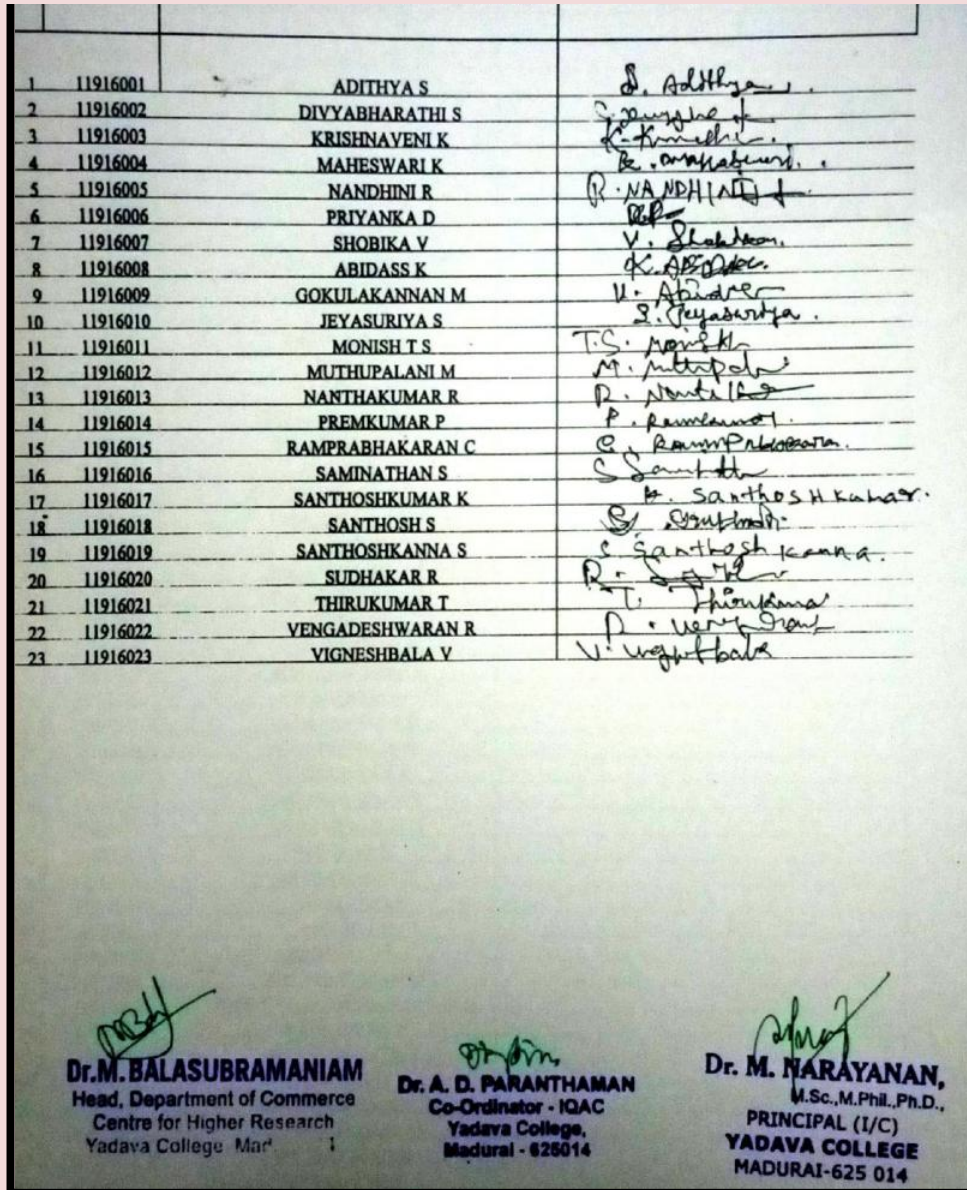 1 11916001 ADITHYA S S. Adithya
2 11916002 DIVYABHARATHI S
3 11916003 KRISHNAVENI K
4 11916004 MAHESWARI K
5 11916005 NANDHINI R R. NANDHINI
6 11916006 PRIYANKA D
7 11916007 SHOBIKA V V.
8 11916008 ABIDASS K K.
9 11916009 GOKULAKANNAN M
10 11916010 JEYASURIYA S S. Jeyasuriya.
11 11916011 MONISH T S T.S. Monish
12 11916012 MUTHUPALANI M M.
13 11916013 NANTHAKUMAR R R.
14 11916014 PREMKUMAR P P.
15 11916015 RAMPRABHAKARAN C C.
16 11916016 SAMINATHAN S S
17 11916017 SANTHOSHKUMAR K K. SanthosH Kumar.
18 11916018 SANTHOSH S S.
19 11916019 SANTHOSHKANNA S S Santhosh kanna.
20 11916020 SUDHAKAR R R.
21 11916021 THIRUKUMAR T T.
22 11916022 VENGADESHWARAN R R.
23 11916023 VIGNESHBALA V V.
Dr.M.BALASUBRAMANIAM
Head, Department of Commerce
Centre for Higher Research
Yadava College
Dr. A. D. PARANTHAMAN
Co-Ordinator - IQAC
Yadava College,
Madurai - 625014
Dr. M. NARAYANAN,
M.Sc.,M.Phil.,Ph.D.,
PRINCIPAL (I/C)
YADAVA COLLEGE
MADURAI-625 014